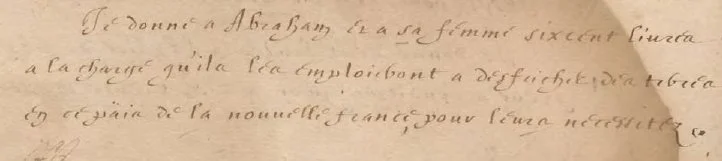 Je donne a Abraham et a sa femme sixcent liures
a la charge qu'ils les emploieront a desfricher des terres
en ce païs de la nouuelle france, pour leurs necessitez